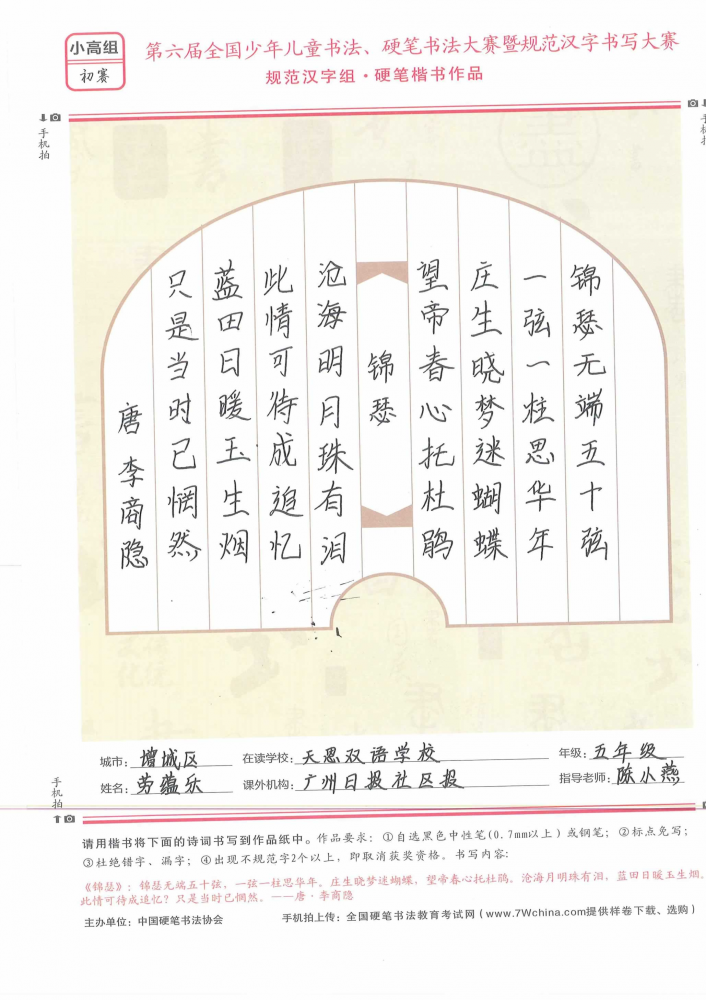 小高组
初赛
第六届全国少年儿童书法、硬笔书法大赛暨规范汉字书写大赛
规范汉字组·硬笔楷书作品
手机拍
手机拍
锦瑟无端五十弦
一弦一柱思华年
庄生晓梦迷蝴蝶
望帝春心托杜鹃
锦瑟
沧海明月珠有泪
蓝田日暖玉生烟
此情可待成追忆
只是当时已惘然
唐 李商隐
城市：增城区 在读学校：天思双语学校 年级：五年级
姓名：劳蕴乐 课外机构：广州日报社区报 指导老师：陈小燕
手机拍
请用楷书将下面的诗词书写到作品纸中。作品要求：①自选黑色中性笔(0.7mm以上)或钢笔；②标点免写；
③杜绝错字、漏字；④出现不规范字2个以上，即取消获奖资格。书写内容：
《锦瑟》：锦瑟无端五十弦，一弦一柱思华年。庄生晓梦迷蝴蝶，望帝春心托杜鹃。沧海月明珠有泪，蓝田日暖玉生烟。
此情可待成追忆？只是当时已惘然。——唐·李商隐
主办单位：中国硬笔书法协会 手机拍上传：全国硬笔书法教育考试网（www.7Wchina.com提供样卷下载、选购）